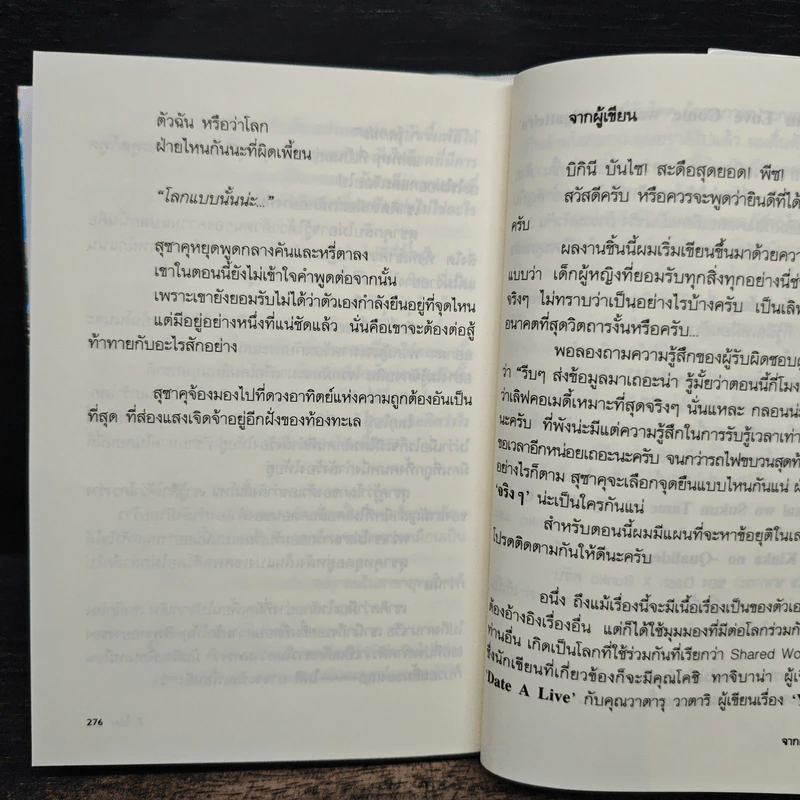 ตัวฉัน หรือว่าโลก
ฝ่ายไหนกันนะที่ผิดเพี้ยน
“โลกแบบนั้นน่ะ...”
สุซาคุหยุดพูดกลางคันและหรี่ตาลง
เขาในตอนนี้ยังไม่เข้าใจคำพูดต่อจากนั้น
เพราะเขายังยอมรับไม่ได้ว่าตัวเองกำลังยืนอยู่ที่จุดไหน
แต่มีอยู่อย่างหนึ่งที่แน่ชัดแล้ว นั่นคือเขาจะต้องต่อสู้
ท้าทายกับอะไรสักอย่าง
สุซาคุจ้องมองไปที่ดวงอาทิตย์แห่งความถูกต้องอันเป็น
ที่สุด ที่ส่องแสงเจิดจ้าอยู่อีกฝั่งของท้องทะเล
276
จากผู้เขียน
บิกินี บันไซ! สะดือสุดยอด! พีช!
สวัสดีครับ หรือควรจะพูดว่ายินดีที่ได้
ครับ
ผลงานชิ้นนี้ผมเริ่มเขียนขึ้นมาด้วยความ
แบบว่า เด็กผู้หญิงที่ยอมรับทุกสิ่งทุกอย่างนี่
จริงๆ ไม่ทราบว่าเป็นอย่างไรบ้างครับ เป็น
อนาคตที่สุดวิตถารงั้นหรือครับ...
พอลองถามความรู้สึกของผู้รับผิดชอบ
ว่า “รีบๆ ส่งข้อมูลมาเถอะน่า รู้มั้ยว่าตอนนี้กี่โมง
ว่าเลิฟคอเมดี้เหมาะที่สุดจริงๆ นั่นแหละ กลอน
นะครับ ที่ฟังน่ะมีแต่ความรู้สึกในการรับรู้เวลาเท่า
ขอเวลาอีกหน่อยเถอะนะครับ จนกว่ารถไฟขบวนสุดท้
อย่างไรก็ตาม สุซาคุจะเลือกจุดยืนแบบไหนกันแน่
‘จริงๆ’ น่ะเป็นใครกันแน่
สำหรับตอนนี้ผมมีแผนที่จะหาข้อยุติใน
โปรดติดตามกันให้ดีนะครับ
อนึ่ง ถึงแม้เรื่องนี้จะมีเนื้อเรื่องเป็นของตัวเอ
ต้องอ้างอิงเรื่องอื่น แต่ก็ได้ใช้มุมมองที่มีต่อโลกร่วม
ท่านอื่น เกิดเป็นโลกที่ใช้ร่วมกันที่เรียกว่า Shared Wo
ซึ่งนักเขียนที่เกี่ยวข้องก็จะมีคุณโคชิ ทาจิบาน่า ผู้
‘Date A Live’ กับคุณวาตารุ วาตาริ ผู้เขียนเรื่อง
จาก